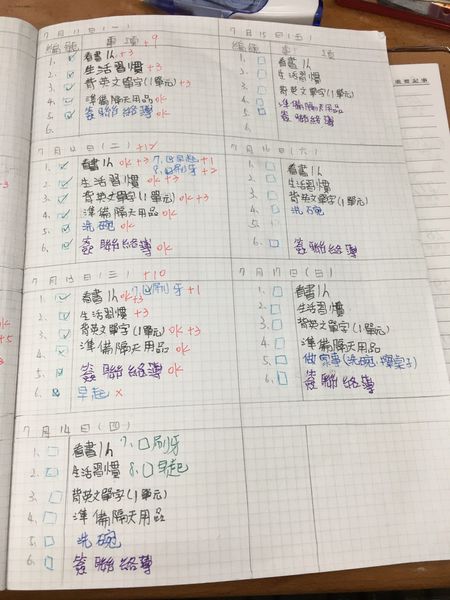 7月11日(一)
編號 事項 +9
1. 看書1h +3
2. 生活習慣 +3
3. 背英文單字(1單元) +3
4. 準備隔天用品 ok
5. 簽聯絡簿 ok
6.
7月12日(二) +12
1. 看書1h ok +3 7. 早起 +1
8. 刷牙 +2
2. 生活習慣 ok +3
3. 背英文單字(1單元) ok +3
4. 準備隔天用品 ok
5. 洗碗 ok
6. 簽聯絡簿 ok
7月13日(三) +10
1. 看書1h ok +3 7. 刷牙 +1
2. 生活習慣 +3
3. 背英文單字(1單元) ok +3
4. 準備隔天用品 ok
5. 簽聯絡簿 ok
6. 早起 ×
7月14日(四)
1. 看書1h 7. 刷牙
2. 生活習慣 8. 早起
3. 背英文單字(1單元)
4. 準備隔天用品
5. 洗碗
6. 簽聯絡簿
7月15日(五)
編號 事項
1. 看書1h
2. 生活習慣
3. 背英文單字(1單元)
4. 準備隔天用品
5. 簽聯絡簿
6.
7月16日(六)
1. 看書1h
2. 生活習慣
3. 背英文單字(1單元)
4. 洗碗
5.
6. 簽聯絡簿
7月17日(日)
1. 看書1h
2. 生活習慣
3. 背英文單字(1單元)
4. 準備隔天用品
5. 做家事(洗碗、擦桌子)
6. 簽聯絡簿
重要記事